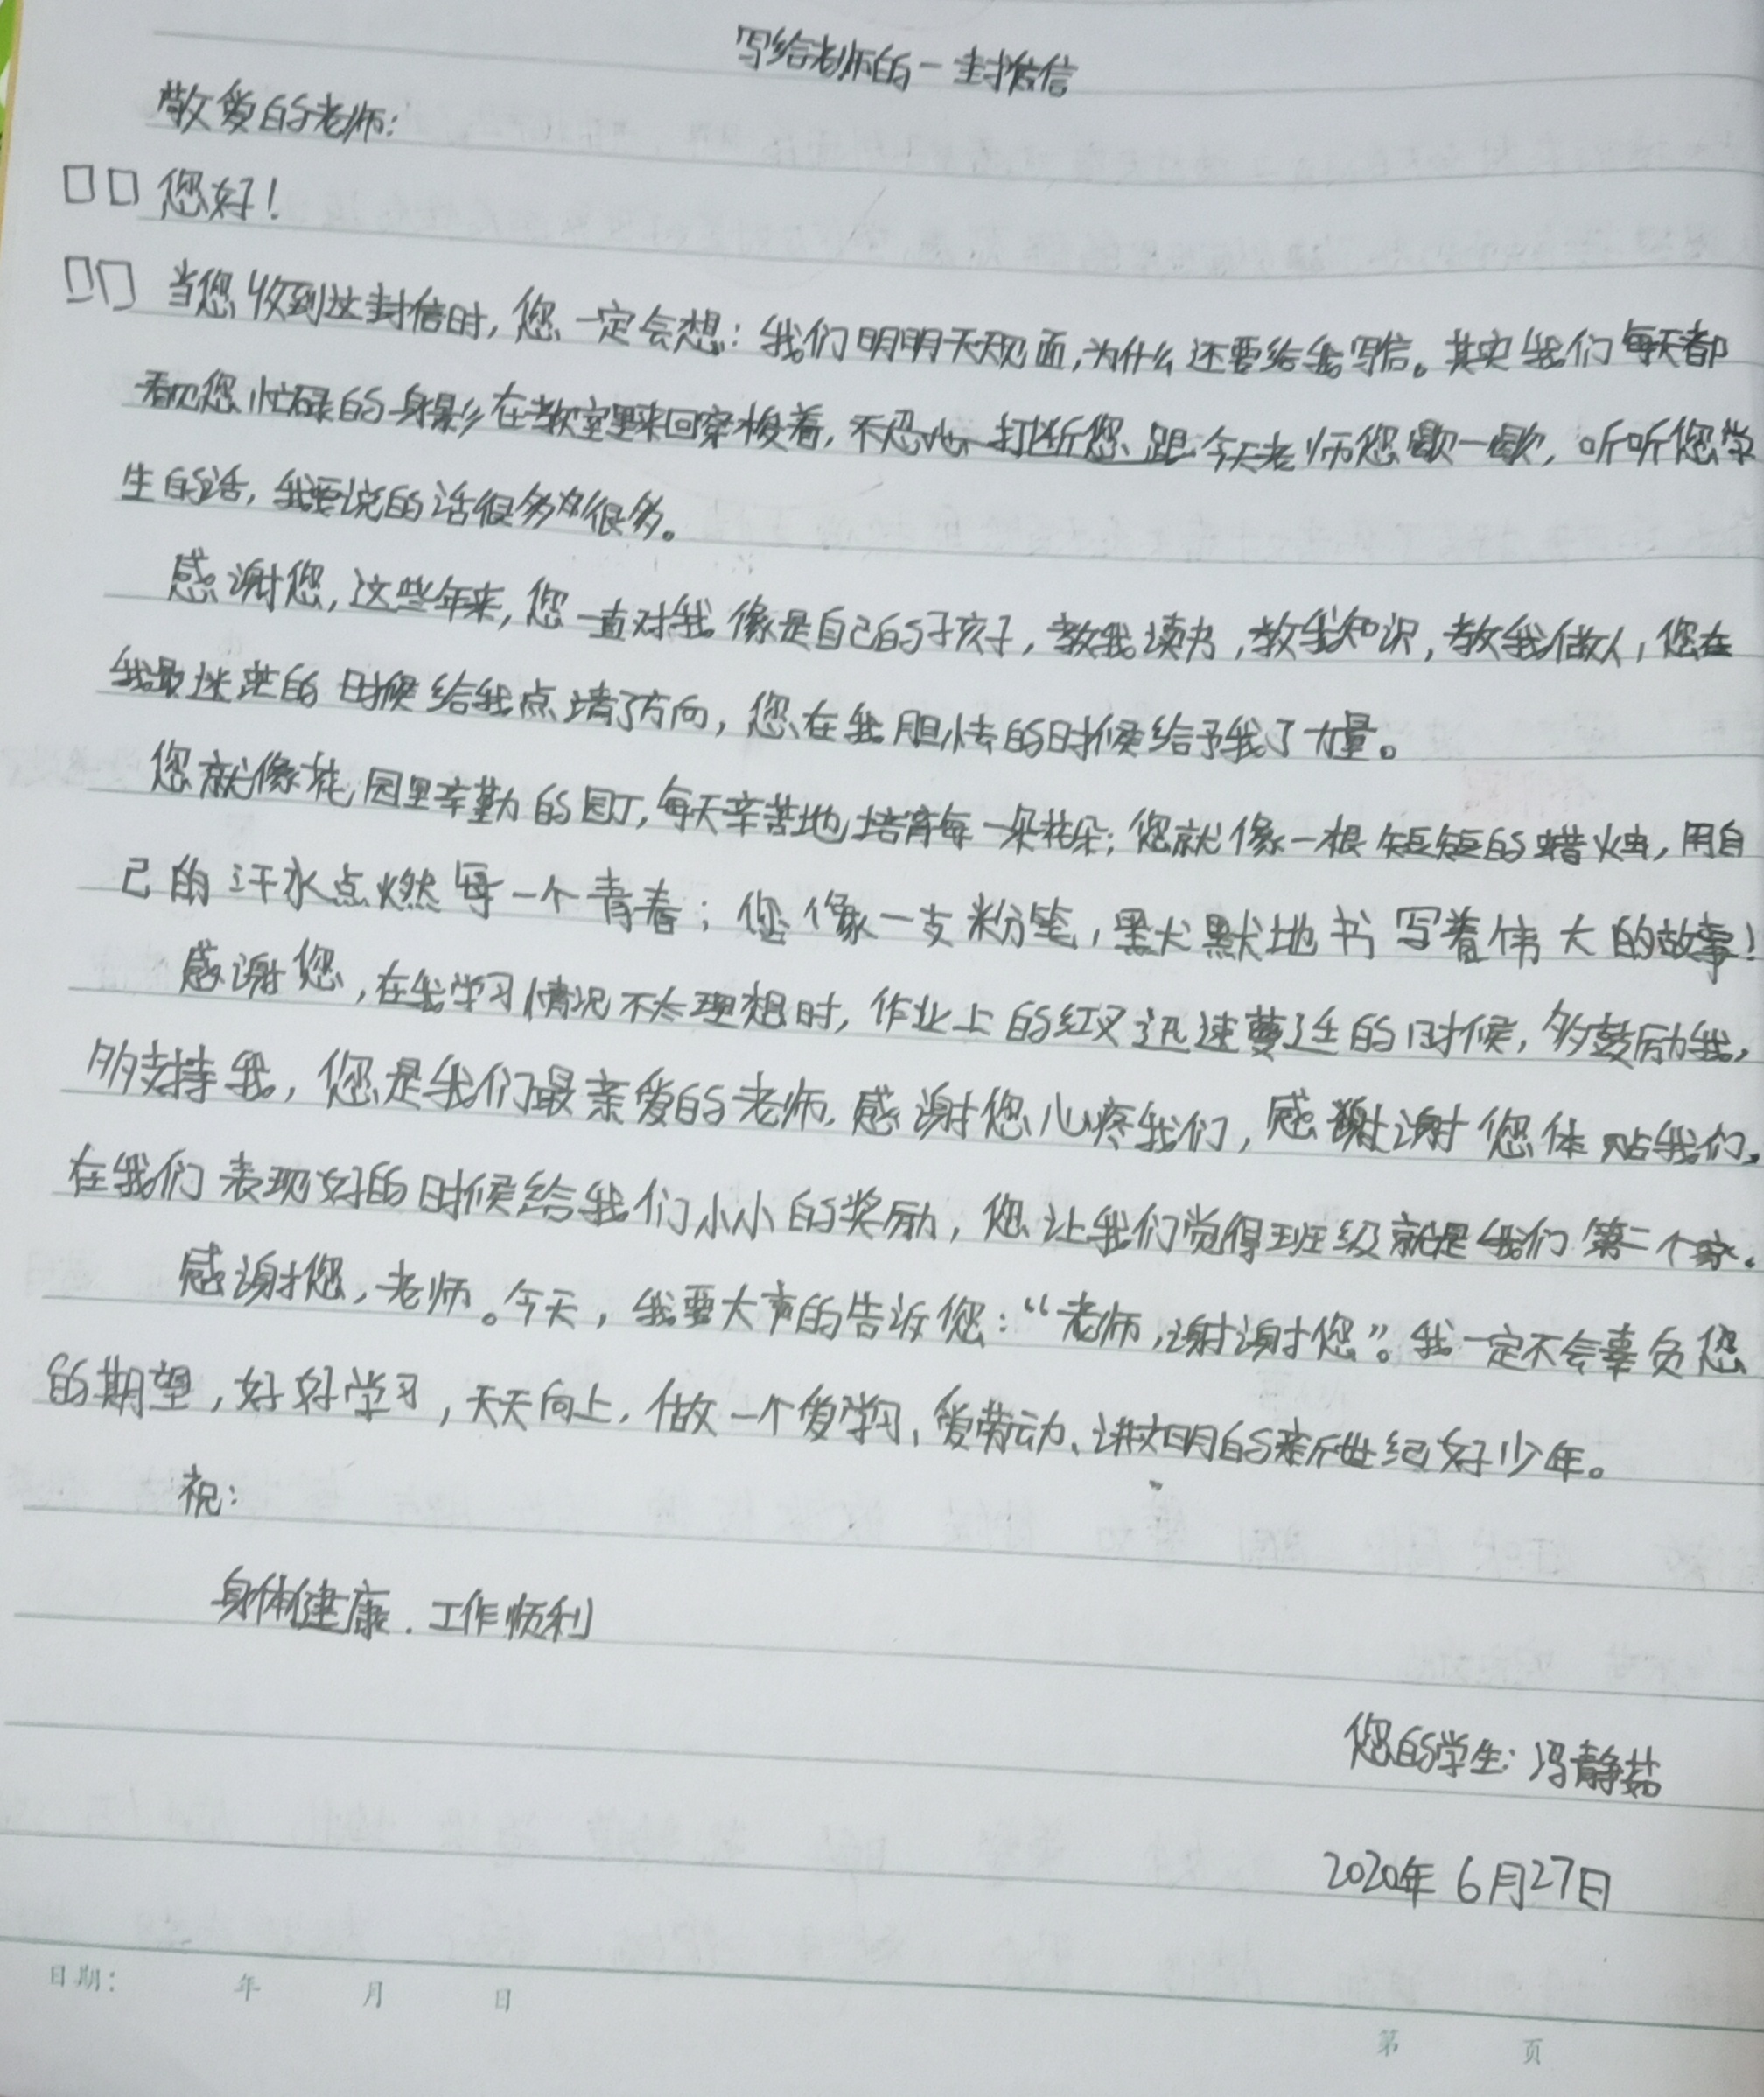 写给老师的一封信
敬爱的老师:
□□您好!
□□当您收到这封信时,您一定会想:我们明明天天见面,为什么还要给我写信。其实我们每天都
看见您忙碌的身影在教室里来回穿梭着,不忍心打断您,今天老师您歇一歇,听听您学
生的话,我要说的话很多很多。
感谢您,这些年来,您一直对我像是自己的孩子,教我读书,教我知识,教我做人,您在
我最迷茫的时候给我点清了方向,您在我胆怯的时候给予我了力量。
您就像花园里辛勤的园丁,每天辛苦地培育每一朵花朵;您就像一根短短的蜡烛,用自
己的汗水点燃每一个青春;您像一支粉笔,默默地书写着伟大的故事!
感谢您,在我学习情况不太理想时,作业上的红叉迅速蔓延的时候,多鼓励我,
多支持我,您是我们最亲爱的老师,感谢您心疼我们,感谢您体贴我们,
在我们表现好的时候给我们小小的奖励,您让我们觉得班级就是我们第二个家。
感谢您,老师。今天,我要大声的告诉您:“老师,谢谢您”。我一定不会辜负您
的期望,好好学习,天天向上,做一个爱学习、爱劳动、讲文明的新世纪好少年。
祝:
身体健康.工作顺利
您的学生:冯静茹
2020年6月27日
日期: 年 月 日
第 页